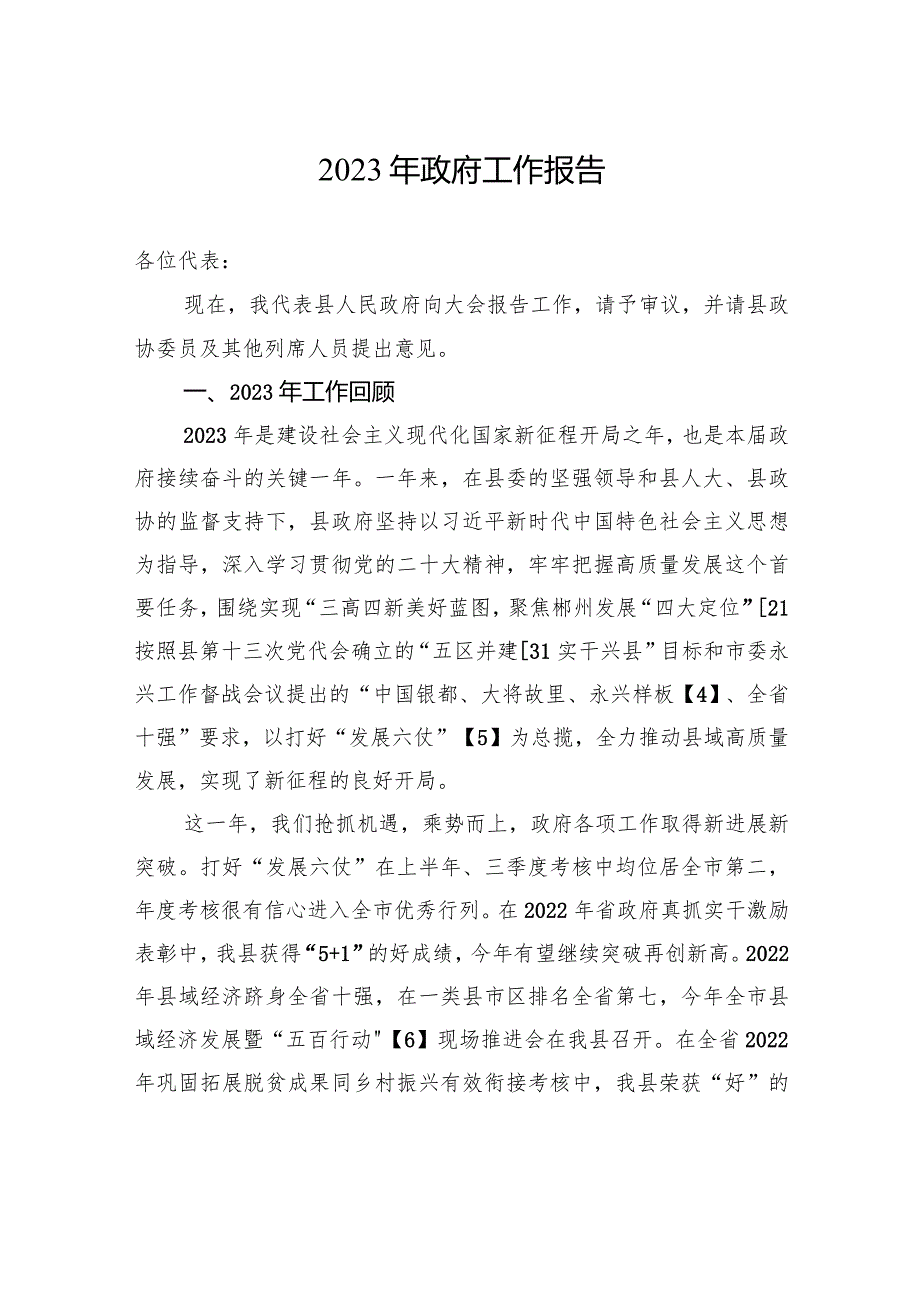 2023年政府工作报告
各位代表：
现在，我代表县人民政府向大会报告工作，请予审议，并请县政
协委员及其他列席人员提出意见。
一、2023年工作回顾
2023年是建设社会主义现代化国家新征程开局之年，也是本届政
府接续奋斗的关键一年。一年来，在县委的坚强领导和县人大、县政
协的监督支持下，县政府坚持以习近平新时代中国特色社会主义思想
为指导，深入学习贯彻党的二十大精神，牢牢把握高质量发展这个首
要任务，围绕实现“三高四新美好蓝图，聚焦郴州发展“四大定位”[21
按照县第十三次党代会确立的“五区并建[31实干兴县”目标和市委永
兴工作督战会议提出的“中国银都、大将故里、永兴样板【4】、全省
十强”要求，以打好“发展六仗”【5】为总揽，全力推动县域高质量
发展，实现了新征程的良好开局。
这一年，我们抢抓机遇，乘势而上，政府各项工作取得新进展新
突破。打好“发展六仗”在上半年、三季度考核中均位居全市第二，
年度考核很有信心进入全市优秀行列。在2022年省政府真抓实干激励
表彰中，我县获得“5+1”的好成绩，今年有望继续突破再创新高。2022
年县域经济跻身全省十强，在一类县市区排名全省第七，今年全市县
域经济发展暨“五百行动"【6】现场推进会在我县召开。在全省2022
年巩固拓展脱贫成果同乡村振兴有效衔接考核中，我县荣获“好”的